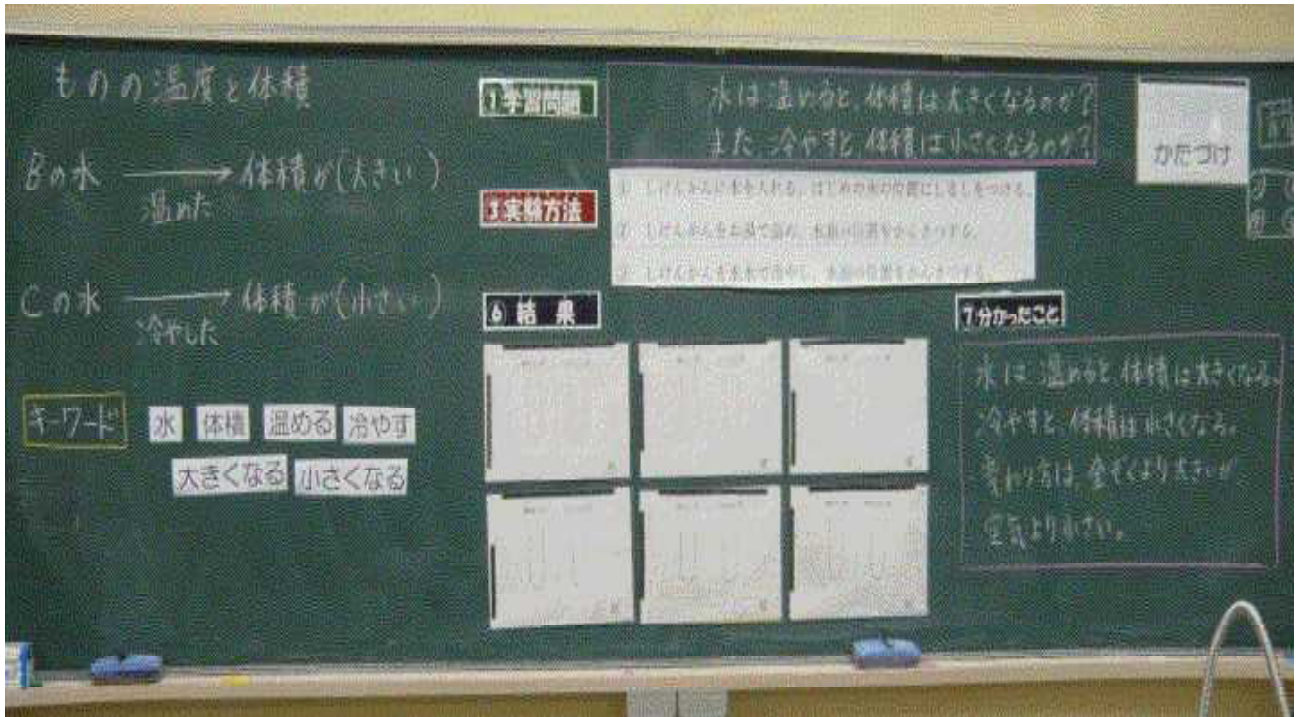 ものの温度と体積
Bの水 → 体積が(大きい)
温めた
Cの水 → 体積が(小さい)
冷やした
キーワード
水 体積 温める 冷やす
大きくなる 小さくなる
①学習問題
水は温めると、体積は大きくなるのか?
また、冷やすと体積は小さくなるのか?
3 実験方法
① しけんかんに水を入れる。はじめの水の位置にしるしをつける。
② しけんかんをお湯で温め、水面の位置をかんさつする。
③ しけんかんを氷水で冷やし、水面の位置をかんさつする。
⑥ 結果
7 分かったこと
水は温めると、体積は大きくなる。
冷やすと、体積は小さくなる。
変わり方は、金ぞくより大きいが
空気より小さい。
かたづけ